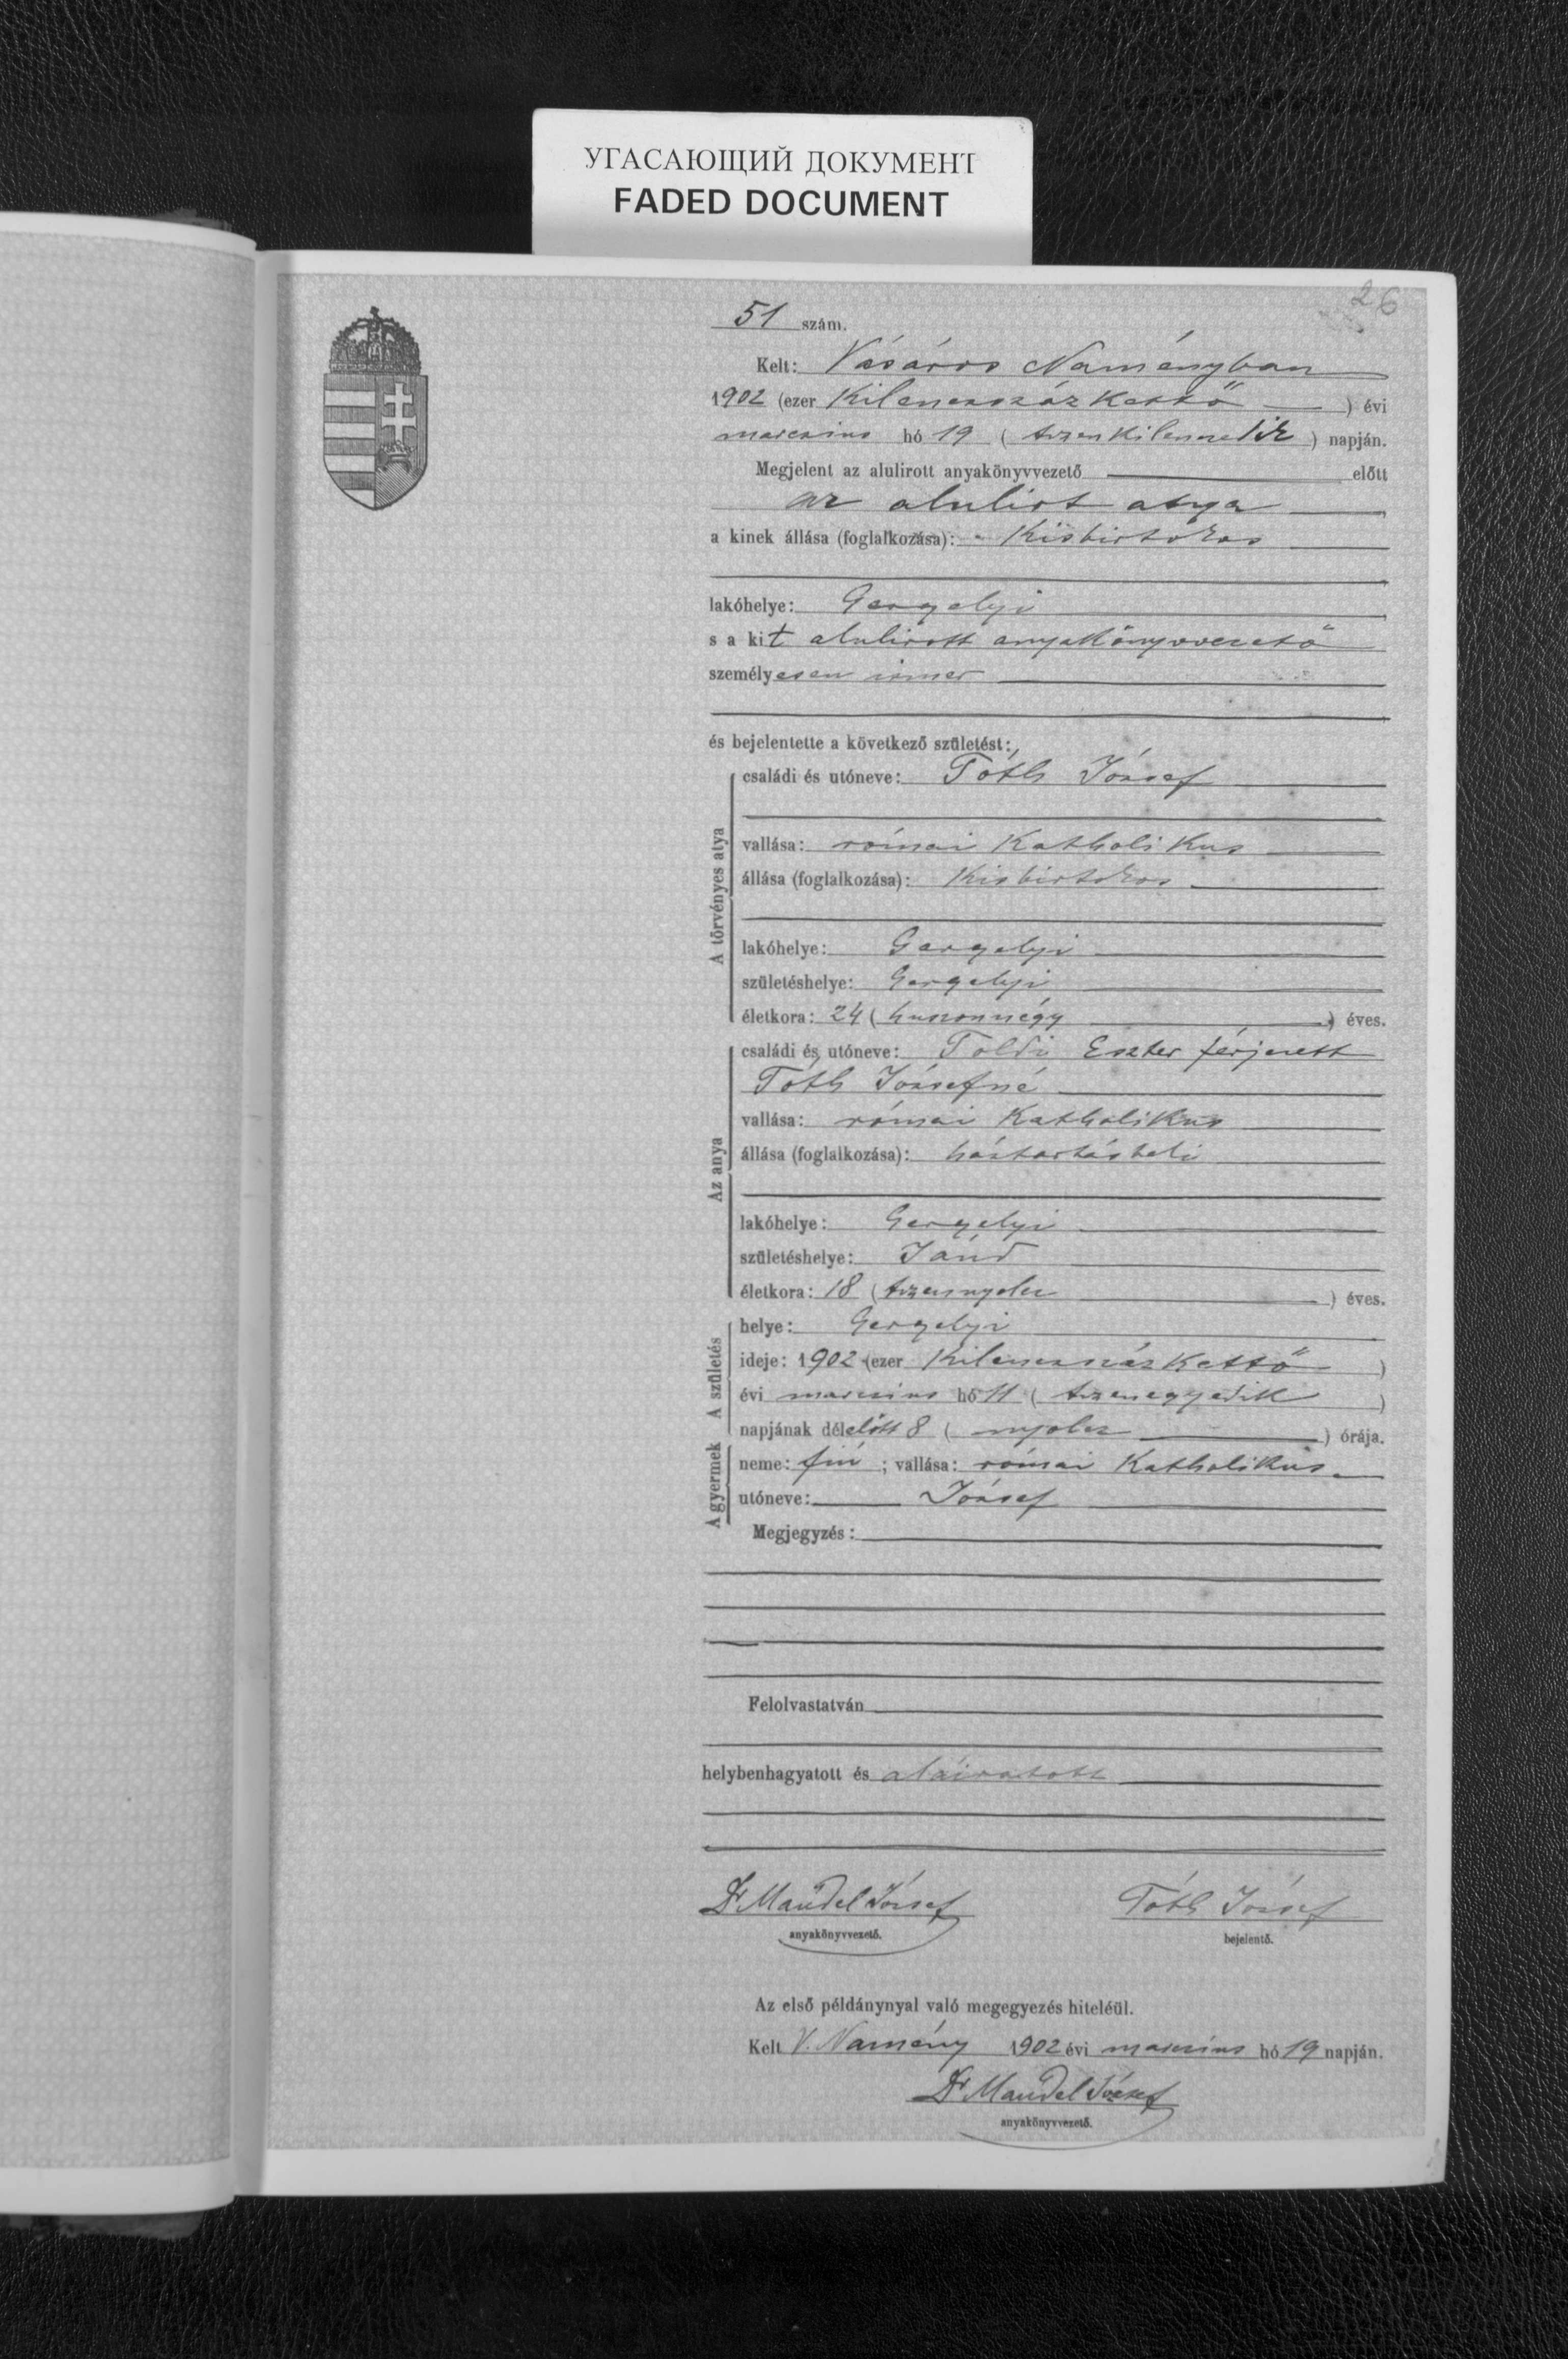 УГАСАЮЩИЙ ДОКУМЕНТ
FADED DOCUMENT
26
51 szám.
Kelt: Vásáros Naményban
1902 (ezer kilenczszázkettő) évi
marczius hó 19 (tizenkilenczedik) napján.
Megjelent az alulirott anyakönyvvezető előtt
az alulirt atya
a kinek állása (foglalkozása): Kisbirtokos
lakóhelye: Gergelyi
s a kit alulirott anyakönyvvezető
személyesen ismer
és bejelentette a következő születést:
A törvényes atya
családi és utóneve: Tóth József
vallása: római katholikus
állása (foglalkozása): Kisbirtokos
lakóhelye: Gergelyi
születéshelye: Gergelyi
életkora: 24 (huszonnégy) éves.
Az anya
családi és utóneve: Toldi Eszter férjezett
Tóth Józsefné
vallása: római katholikus
állása (foglalkozása): háztartásbeli
lakóhelye: Gergelyi
születéshelye: Jánd
életkora: 18 (tizennyolcz) éves.
A születés
helye: Gergelyi
ideje: 1902 (ezer kilenczszázkettő)
évi marczius hó 11 (tizenegyedik)
napjának délelőtt 8 (nyolcz) órája.
A gyermek
neme: fiú; vallása: római katholikus.
utóneve: József
Megjegyzés:
Felolvastatván
helybenhagyatott és aláiratott
Dr Mandel József Tóth József
anyakönyvvezető. bejelentő.
Az első példánynyal való megegyezés hiteléül.
Kelt V. Namény 1902 évi marczius hó 19 napján.
Dr Mandel József
anyakönyvvezető.